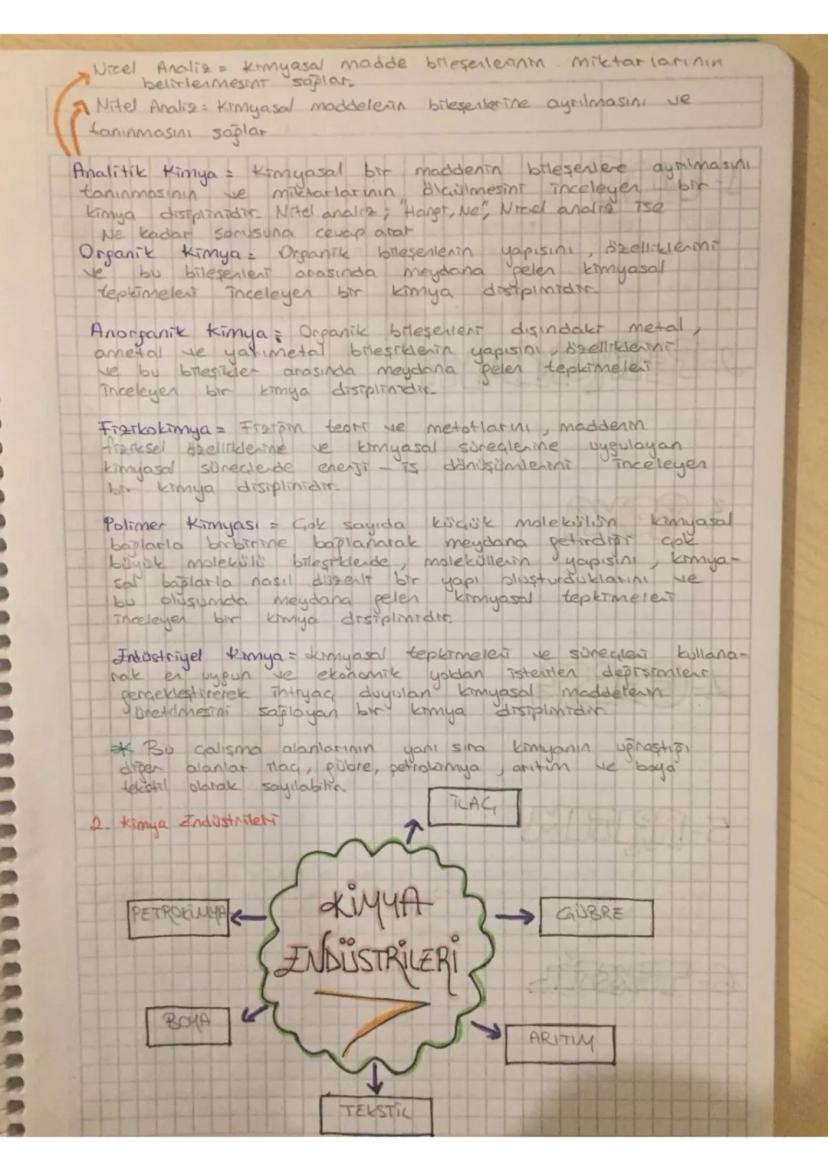 Nicel Analiz = Kimyasal madde bileşenlerinin miktarlarının
belirlenmesini sağlar.
Nitel Analiz = Kimyasal maddelerin bileşenlerine ayrılmasını ve
tanınmasını sağlar
Analitik Kimya = Kimyasal bir maddenin bileşenlere ayrılmasını
tanınmasının ve miktarlarının ölçülmesini inceleyen bir
kimya disiplinidir. Nitel analiz; "Hangi, Ne", Nicel analiz ise
Ne kadar sorusuna cevap arar
Organik Kimya = Organik bileşenlerin yapısını, özelliklerini
ve bu bileşenleri arasında meydana gelen kimyasal
tepkimeleri inceleyen bir kimya disiplinidir.
Anorganik Kimya = Organik bileşenleri dışındaki metal,
ametal ve yarımetal bileşiklerin yapısını, özelliklerini
ve bu bileşikler arasında meydana gelen tepkimeleri
inceleyen bir kimya disiplinidir.
Fizikokimya = Fiziğin teori ve metotlarını, maddenin
fiziksel özelliklerine ve kimyasal süreçlerine uygulayan
kimyasal süreçlerde enerji - iş dönüşümlerini inceleyen
bir kimya disiplinidir.
Polimer Kimyası = Çok sayıda küçük molekülün kimyasal
bağlarla birbirine bağlanarak meydana getirdiği çok
büyük moleküllü bileşiklerde, moleküllerin yapısını, kimya-
sal bağlarla nasıl düzenli bir yapı oluşturduklarını ve
bu oluşumda meydana gelen kimyasal tepkimeleri
inceleyen bir kimya disiplinidir.
Endüstriyel Kimya = Kimyasal tepkimeleri ve süreçleri kullana-
rak en uygun ve ekonomik yoldan istenilen değişimleri
gerçekleştirerek ihtiyaç duyulan kimyasal maddelerin
üretilmesini sağlayan bir kimya disiplinidir.
* Bu çalışma alanlarının yanı sıra kimyanın uğraştığı
diğer alanlar ilaç, gübre, petrokimya, arıtım ve boya
tekstil olarak sayılabilir.
2. Kimya Endüstrileri
İLAÇ
PETROKİMYA
KİMYA
ENDÜSTRİLERİ
GÜBRE
BOYA
ARITIM
TEKSTİL